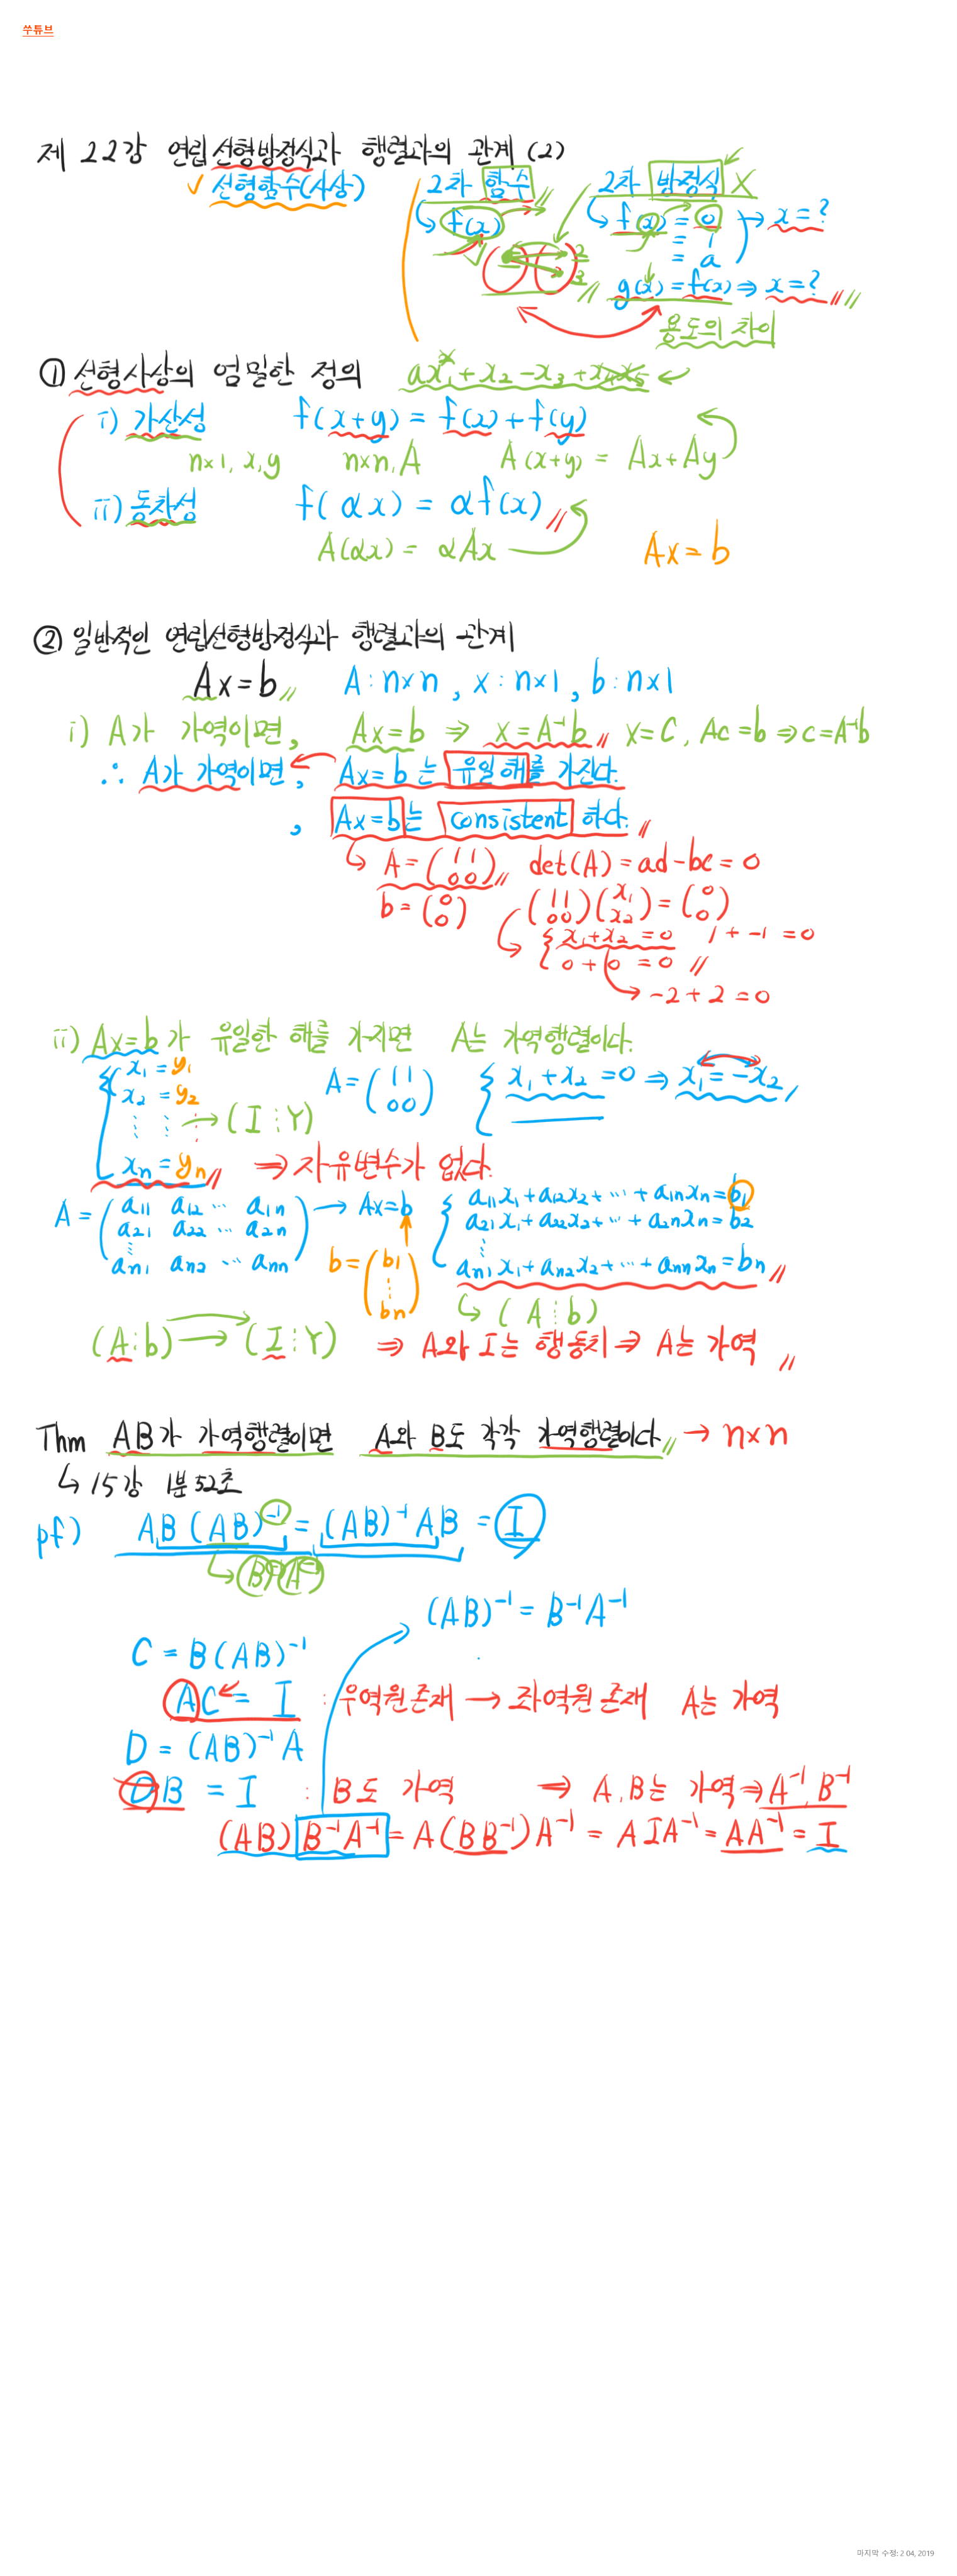 쑤튜브
제 22강 연립선형방정식과 행렬과의 관계 (2)
✓ 선형함수(사상)
2차 함수
2차 방정식 X
↳ f(x)
↳ f(x) = 0 → x = ?
= 1
= a
2
3
g(x) = f(x) ⇒ x = ?
용도의 차이
① 선형사상의 엄밀한 정의 ax₁ + x₂ - x₃ + x₄x₅ ←
i) 가산성 f(x+y) = f(x) + f(y)
n×1, x, y n×n, A A(x+y) = Ax + Ay
ii) 동차성 f(αx) = αf(x)
A(αx) = αAx
Ax = b
② 일반적인 연립선형방정식과 행렬과의 관계
Ax = b A : n×n , x : n×1 , b : n×1
i) A가 가역이면, Ax = b ⇒ x = A⁻¹b x = C, Ac = b ⇒ c = A⁻¹b
∴ A가 가역이면, Ax = b 는 유일해를 가진다.
, Ax = b는 consistent 하다.
↳ A = (1 1 / 0 0) det(A) = ad - bc = 0
b = (0 / 0) (1 1 / 0 0)(x₁ / x₂) = (0 / 0)
↳ { x₁ + x₂ = 0 1 + -1 = 0
0 + 0 = 0
→ -2 + 2 = 0
ii) Ax = b 가 유일한 해를 가지면 A는 가역행렬이다.
{ x₁ = y₁ A = (1 1 / 0 0) { x₁ + x₂ = 0 ⇒ x₁ = -x₂
x₂ = y₂
⋮ ⋮ ⋮ → ( I ⋮ Y )
xn = yn ⇒ 자유변수가 없다.
A = (a11 a12 ⋯ a1n / a21 a22 ⋯ a2n / ⋮ / an1 an2 ⋯ ann) → Ax = b
{ a11x₁ + a12x₂ + ⋯ + a1nxn = b1
a21x₁ + a22x₂ + ⋯ + a2nxn = b2
⋮
an1x₁ + an2x₂ + ⋯ + annxn = bn
b = (b1 / ⋮ / bn)
↳ ( A ⋮ b )
(A ⋮ b) → ( I ⋮ Y ) ⇒ A와 I는 행동치 ⇒ A는 가역
Thm AB가 가역행렬이면 A와 B도 각각 가역행렬이다 → n×n
↳ 15강 1분 52초
pf) AB(AB)⁻¹ = (AB)⁻¹AB = I
↳ B⁻¹A⁻¹
(AB)⁻¹ = B⁻¹A⁻¹
C = B(AB)⁻¹
AC = I : 우역원존재 → 좌역원존재 A는 가역
D = (AB)⁻¹A
DB = I : B도 가역 ⇒ A, B는 가역 ⇒ A⁻¹, B⁻¹
(AB)B⁻¹A⁻¹ = A(BB⁻¹)A⁻¹ = AIA⁻¹ = AA⁻¹ = I
마지막 수정: 2 04, 2019